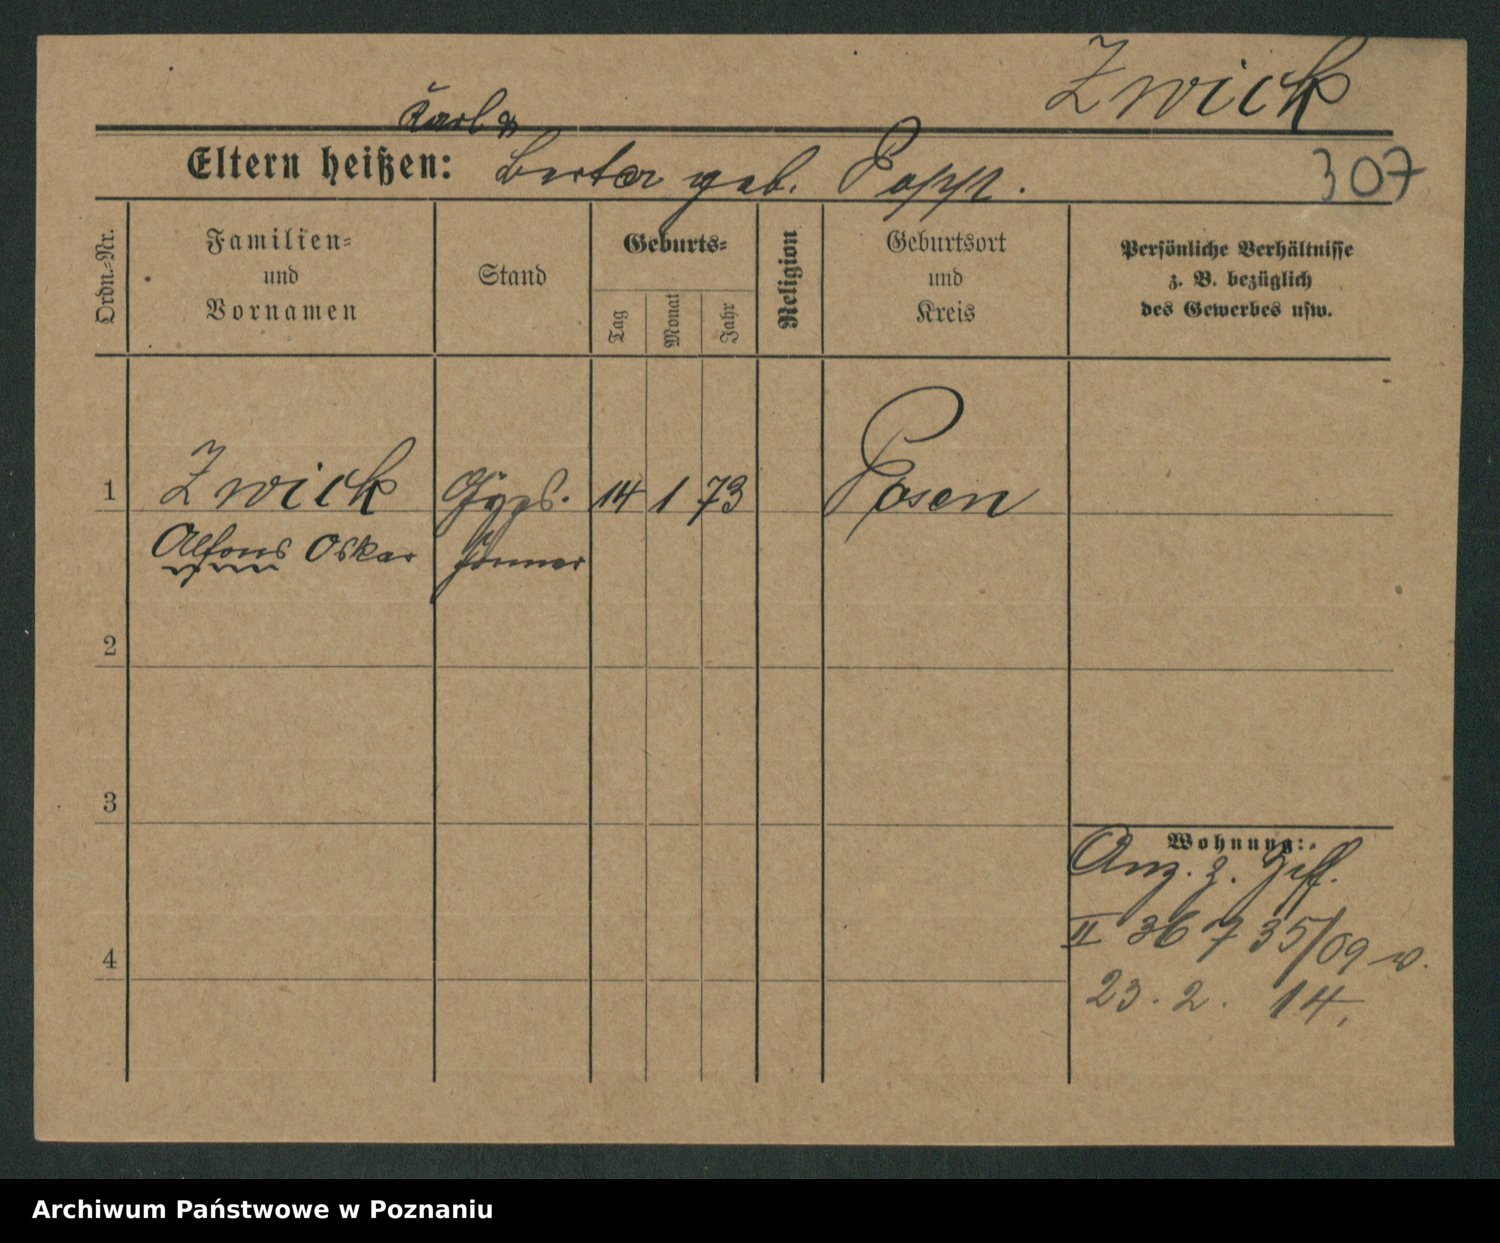 Zwick
Karl &
Eltern heißen: Berta geb. Popp.
307
Ordn.-Nr.
Familien-
und
Vornamen
Stand
Geburts-
Tag
Monat
Jahr
Religion
Geburtsort
und
Kreis
Persönliche Verhältnisse
z. B. bezüglich
des Gewerbes usw.
1 Zwick Gyps. 14 1 73 Posen
Alfons Oskar former
2
3
Wohnung:
Anz. z.
II 36 735/09 v.
4
23. 2. 14.
Archiwum Państwowe w Poznaniu